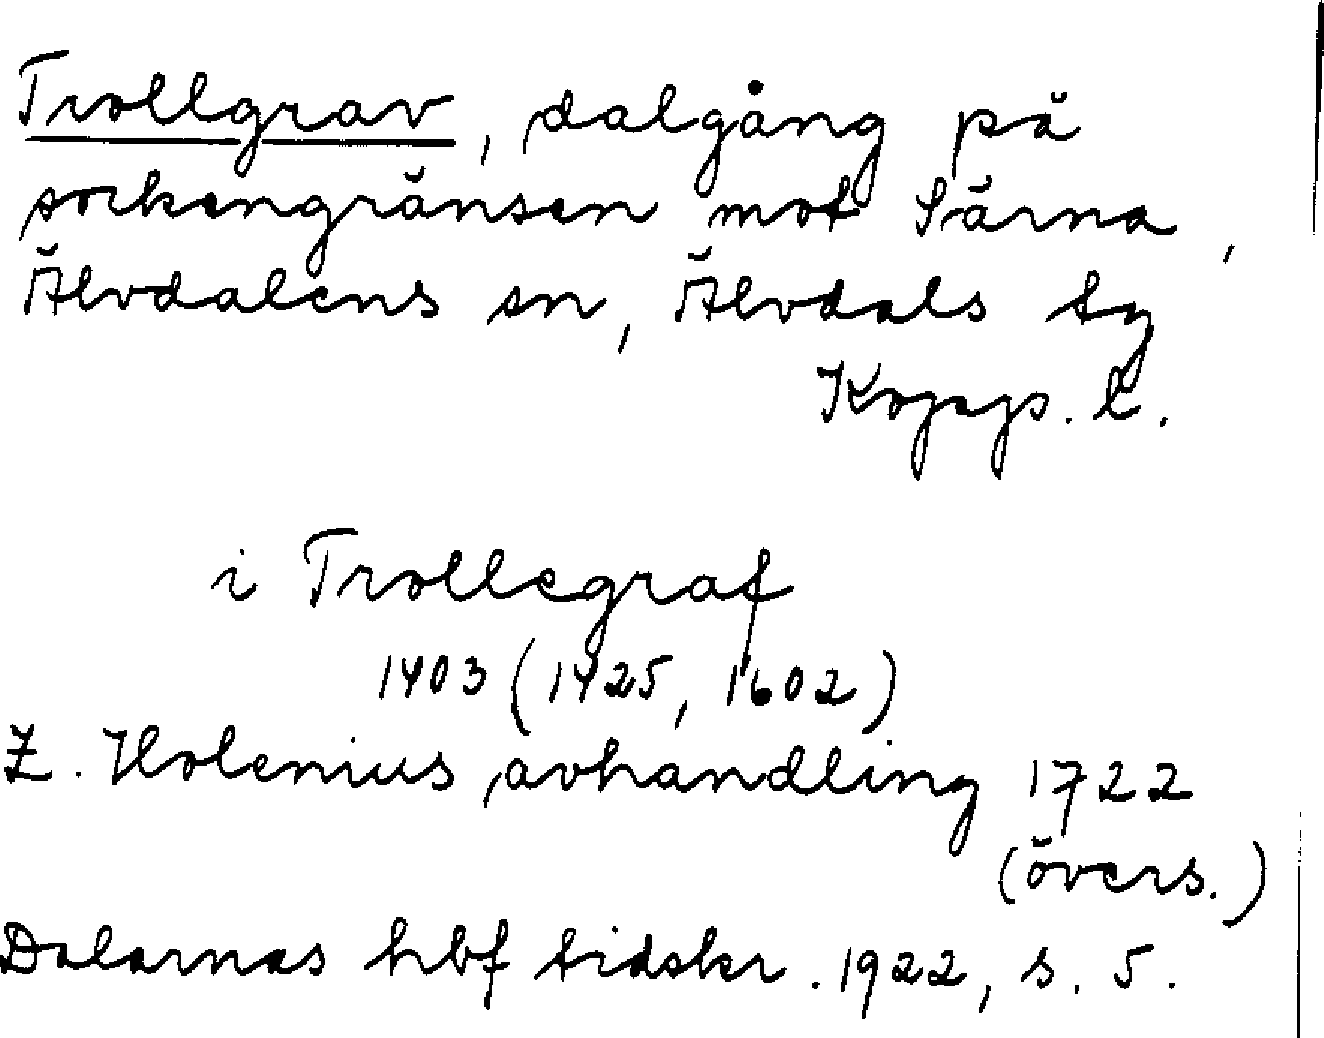 Trollgrav, dalgång på
sockengränsen mot Särna,
Älvdalens sn, Älvdals tg
Kopps. l.
i Trollegraf
1403 (1425, 1602)
Z. Holenius avhandling 1722
(övers.)
Dalarnas hbf tidskr. 1922, s. 5.